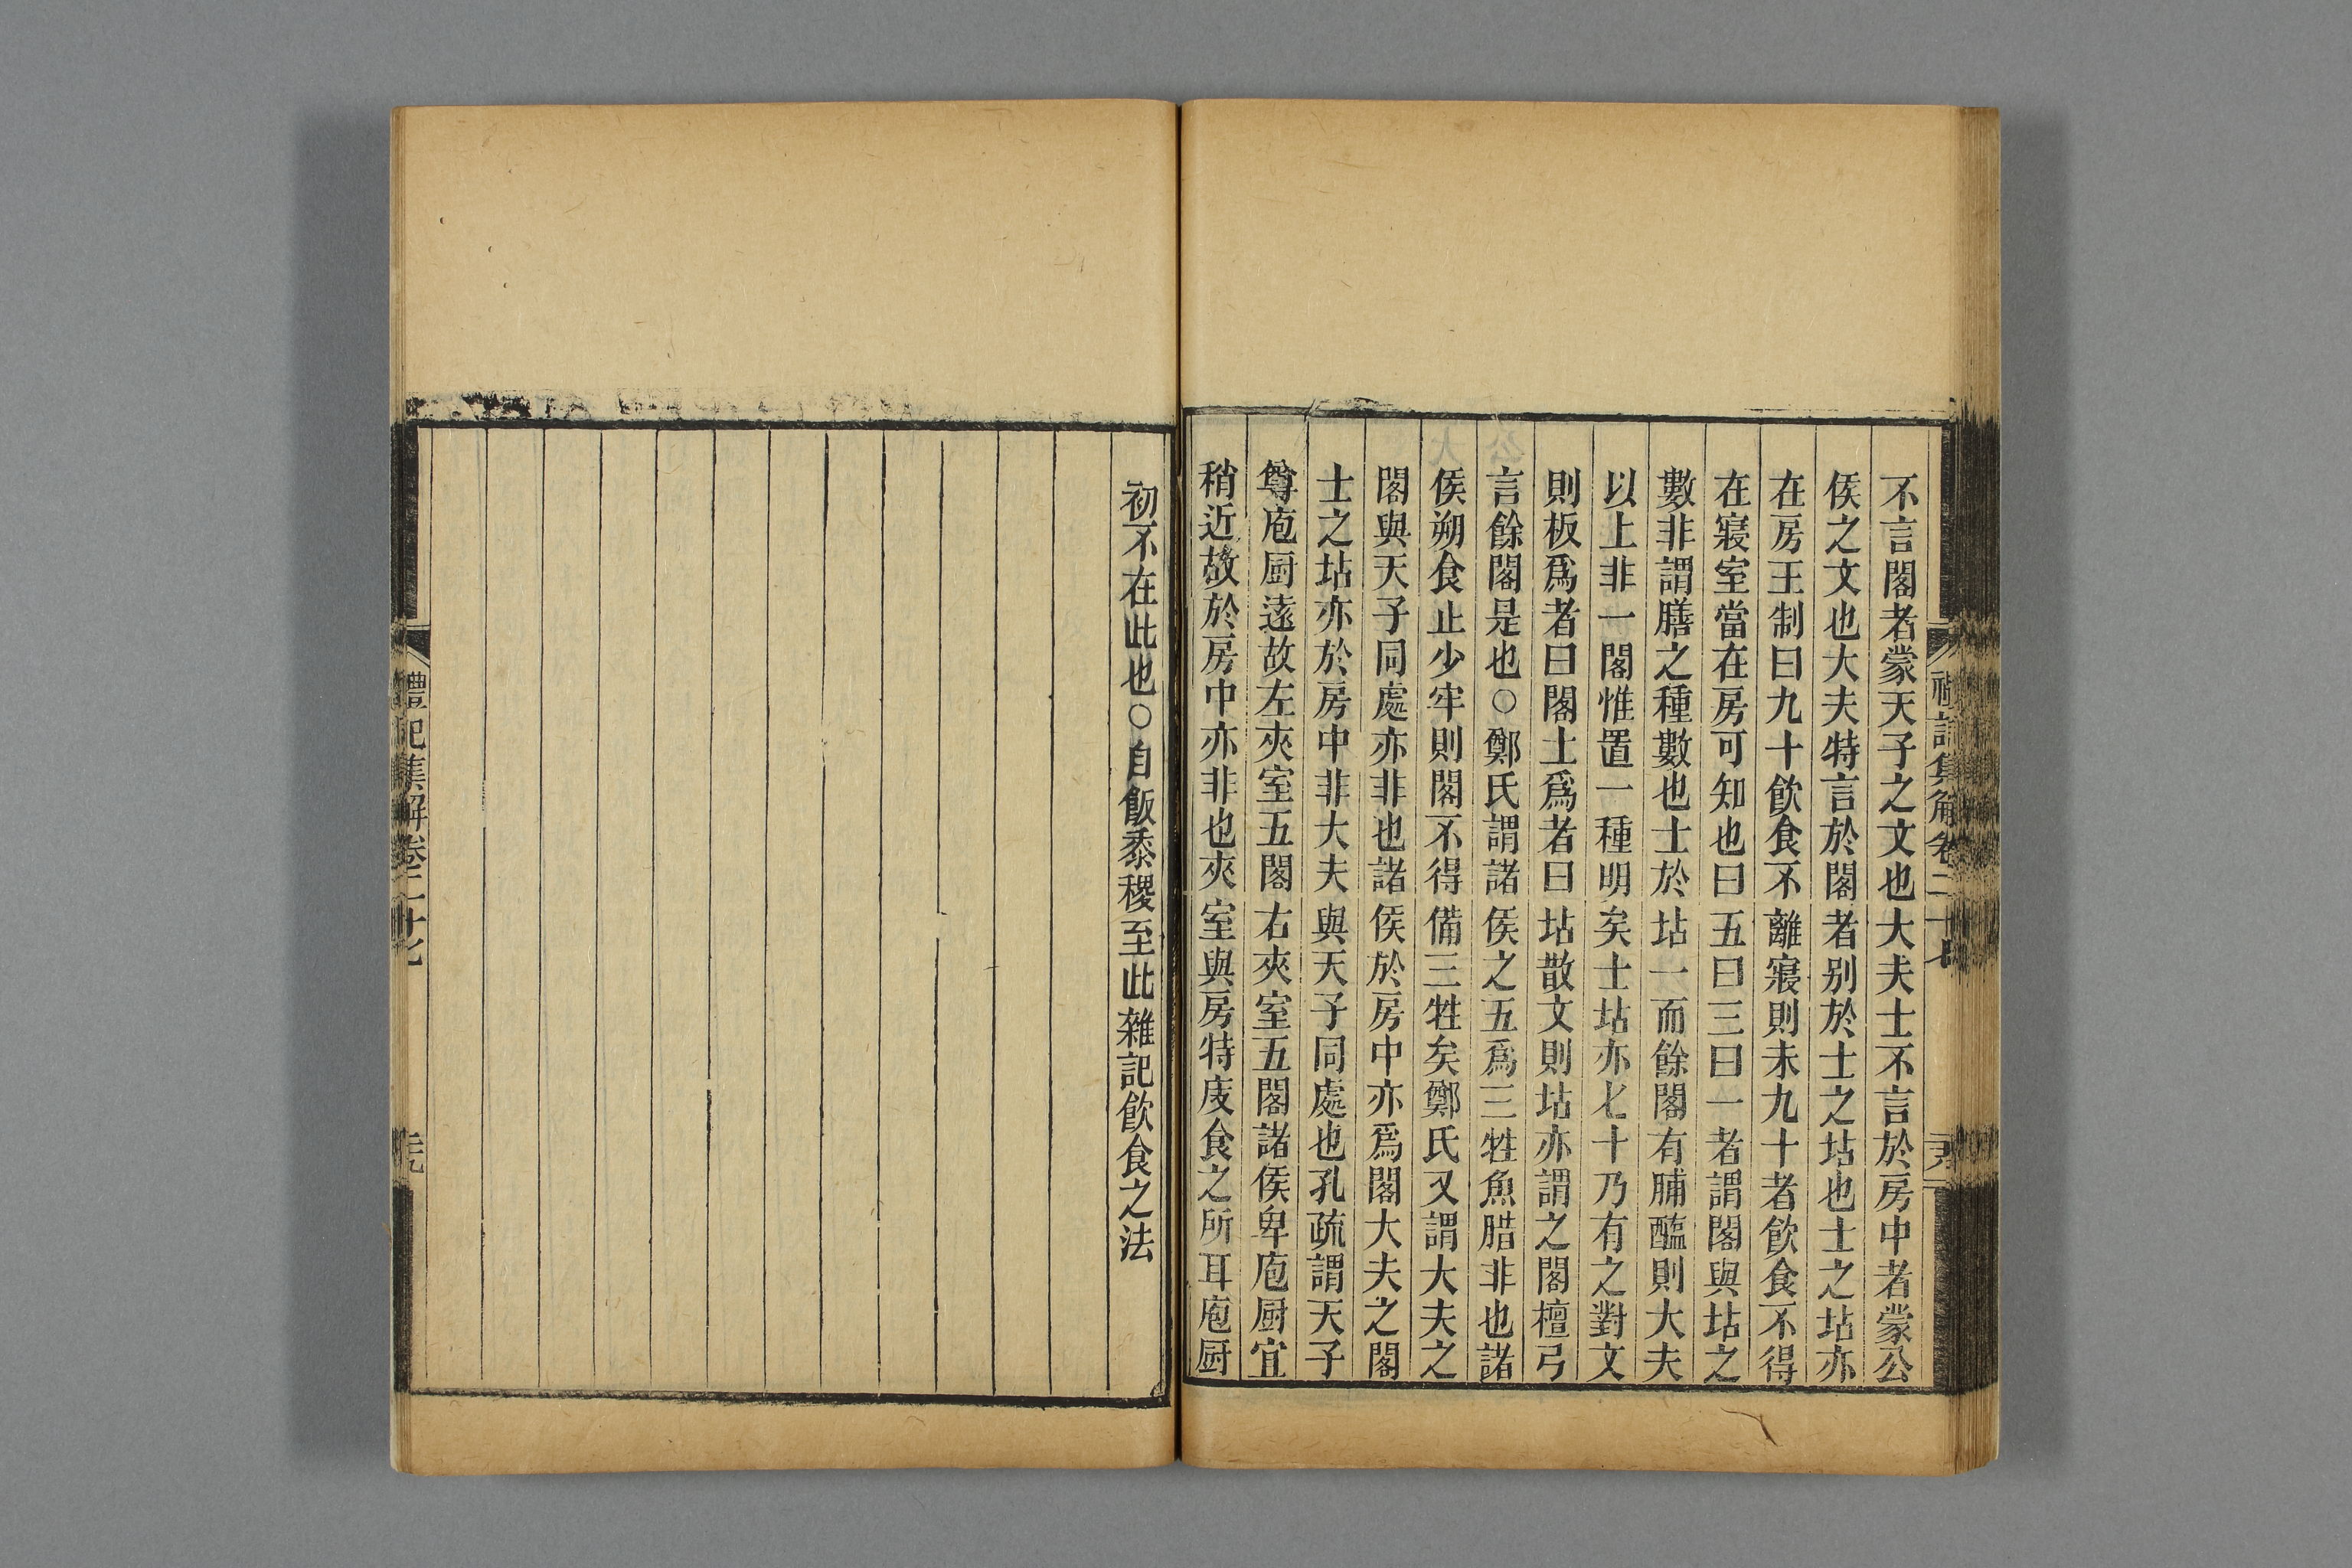 不言閣者蒙天子之文也大夫士不言於房中者蒙公
侯之文也大夫特言於閣者别於士之坫也士之坫亦
在房王制曰九十飮食不離寢則未九十者飮食不得
在寢室當在房可知也曰五曰三曰一者謂閣與坫之
數非謂膳之種數也士於坫一而餘閣有脯醢則大夫
以上非一閣惟置一種明矣士坫亦七十乃有之對文
則板爲者曰閣土爲者曰坫散文則坫亦謂之閣檀弓
言餘閣是也○鄭氏謂諸侯之五爲三牲魚腊非也諸
侯朔食止少牢則閣不得備三牲矣鄭氏又謂大夫之
閣與天子同處亦非也諸侯於房中亦爲閣大夫之閣
士之坫亦於房中非大夫與天子同處也孔疏謂天子
尊庖厨遠故左夾室五閣右夾室五閣諸侯卑庖厨宜
稍近故於房中亦非也夾室與房特庋食之所耳庖厨
禮記集解卷二十七
初不在此也○自飯黍稷至此雜記飮食之法
禮記集解卷二十七